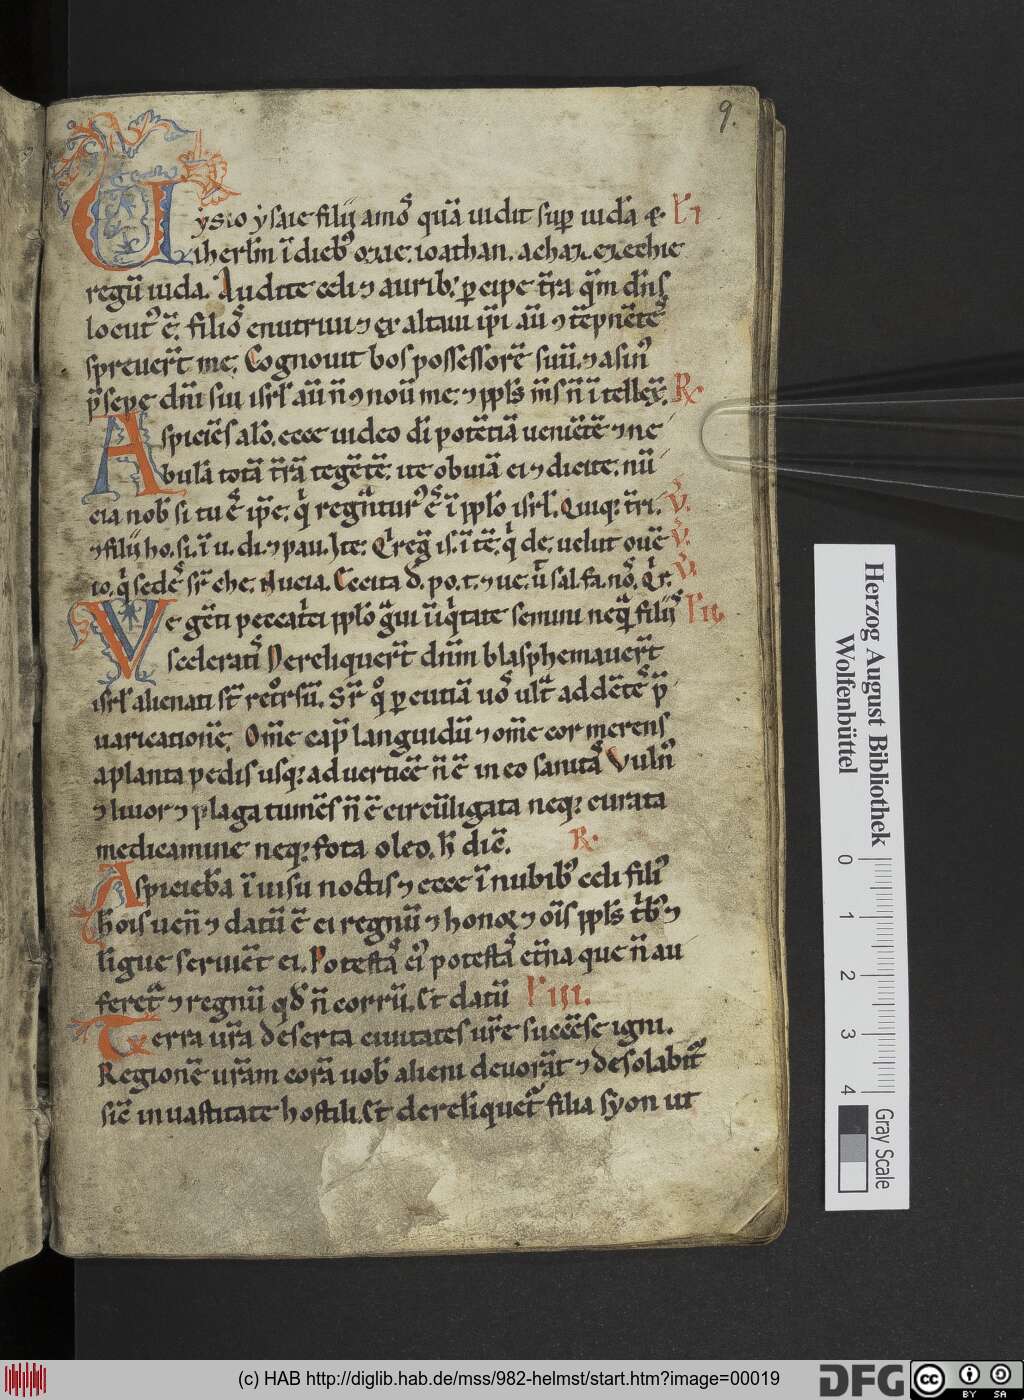 9.
Uẏsio ẏsaie filij amoꝫ quā uidit suꝑ iudā ⁊ L' I
iherłm ī dieb; oꝫie; ioathan. achaꝫ. eꝫechie
regū iuda. Audite celi ⁊ aurib; ꝑcipe t̄ra q̄m dn̄s
locut᷒ ē. filios enutriui ⁊ exaltaui ip̄i aū ⁊ tēpnētes
spreuerūt me. Cognouit bos possessorē suū. ⁊ asin᷒
p̄sepe dn̄i sui isrł aū n̄ ⁊nouit me. ⁊ ppłs m̄s n̄ ī tellex. R.
Aspiciēs alō. ecce uideo di potētiā ueniētē ⁊ ne
bulā totā t̄rā tegētē. ite obuiā ei ⁊ dicite. nū
cia nob si tu ē ip̄e. q' regnatur᷒ ē ī ppło isrł. Quiq; t̄ri. V.
⁊ filij ho. si. ī u. di. ⁊ pau. Ite. Q' reḡ is. ītē. q' de. uelut ouē V.
io. q' sedes sr̄ che. Nucia. Excita d. po. t. ⁊ ue. ut sal. fa. nos. Q' r. V.
Ve gēti peccatci ppło g̃ui iniq'tate semini neq̃ filijs L' II.
sceleratis Dereliquert̄ dn̄m blasphemauert̄
isrł alienati st̄ retrorsū. Sr̄ q̊ ꝑcutiā uos ult̄ addētes p̄
uaricationē. Om̄e cap̄ languidū ⁊ om̄e cor merens
aplanta pedis usq; ad uerticē n̄ ē in eo sanitas Vuln᷒
⁊ liuor ⁊ plaga tumēs n̄ ē circūligata neq; curata
medicamine neq; fota oleo. h̄ dic̄. R.
Aspiciebā ī uisu noctis ⁊ ecce ī nubib; celi fili᷒
hōis uen̄ ⁊ datū ē ei regnū ⁊ honor ⁊ oīs ppłs t'b; ⁊
ligue seruiēt ei. Potestas ei᷒ potestas et̄na que n̄ au
feret̃ ⁊ regnū qd n̄ corrū. Et datū L' III.
Terra ur̄a deserta ciuitates ur̄e succēse igni.
Regionē ur̄am corā uob alieni deuorāt ⁊ desolabit̃
sic̄ in uastitate hostili. Et dereliquet̃ filia syon ut
Herzog August Bibliothek
Wolfenbüttel
0 1 2 3 4
Gray Scale
(c) HAB http://diglib.hab.de/mss/982-helmst/start.htm?image=00019
DFG
cc BY SA